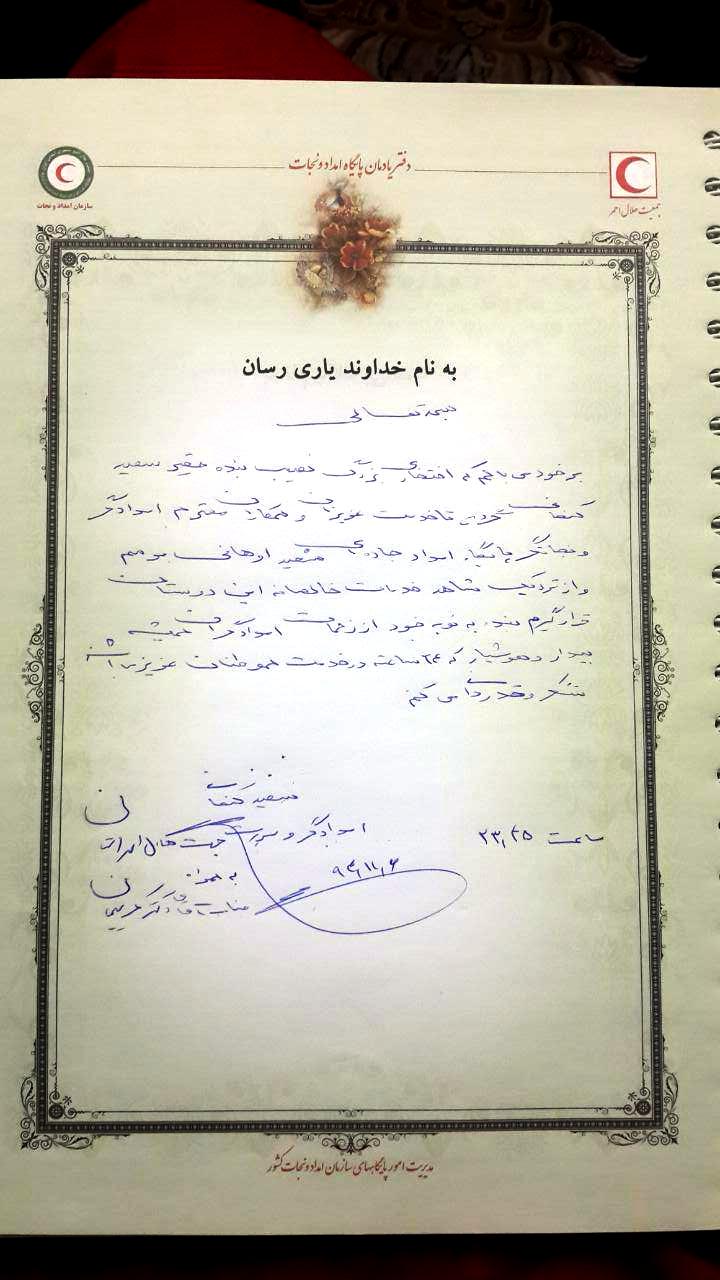 دفتر یادمان پایگاه امداد و نجات
جمعیت هلال احمر
سازمان امداد و نجات
به نام خداوند یاری رسان
بسمه تعالی
بر خود می بالم که افتخاری بزرگ نصیب بنده حقیر سعید
کنعانی گردید تا خدمت عزیزان و همکاران محترم امدادگر
و نجاتگر پایگاه امداد جاده ای شهید اوهانی برسم
و از نزدیک شاهد خدمات خالصانه این دوستان
قرار گیرم بنده به نوبه خود از زحمات امدادگران همیشه
بیدار و هوشیار که ۲۴ ساعته در خدمت هموطنان عزیز می باشند
تشکر و قدردانی می کنم
سعید کنعانی
امدادگر و جمعیت هلال احمر
ساعت ۲۳:۴۵
به همراه
جناب آقای دکتر کریمی
مدیریت امور پایگاههای سازمان امداد و نجات کشور